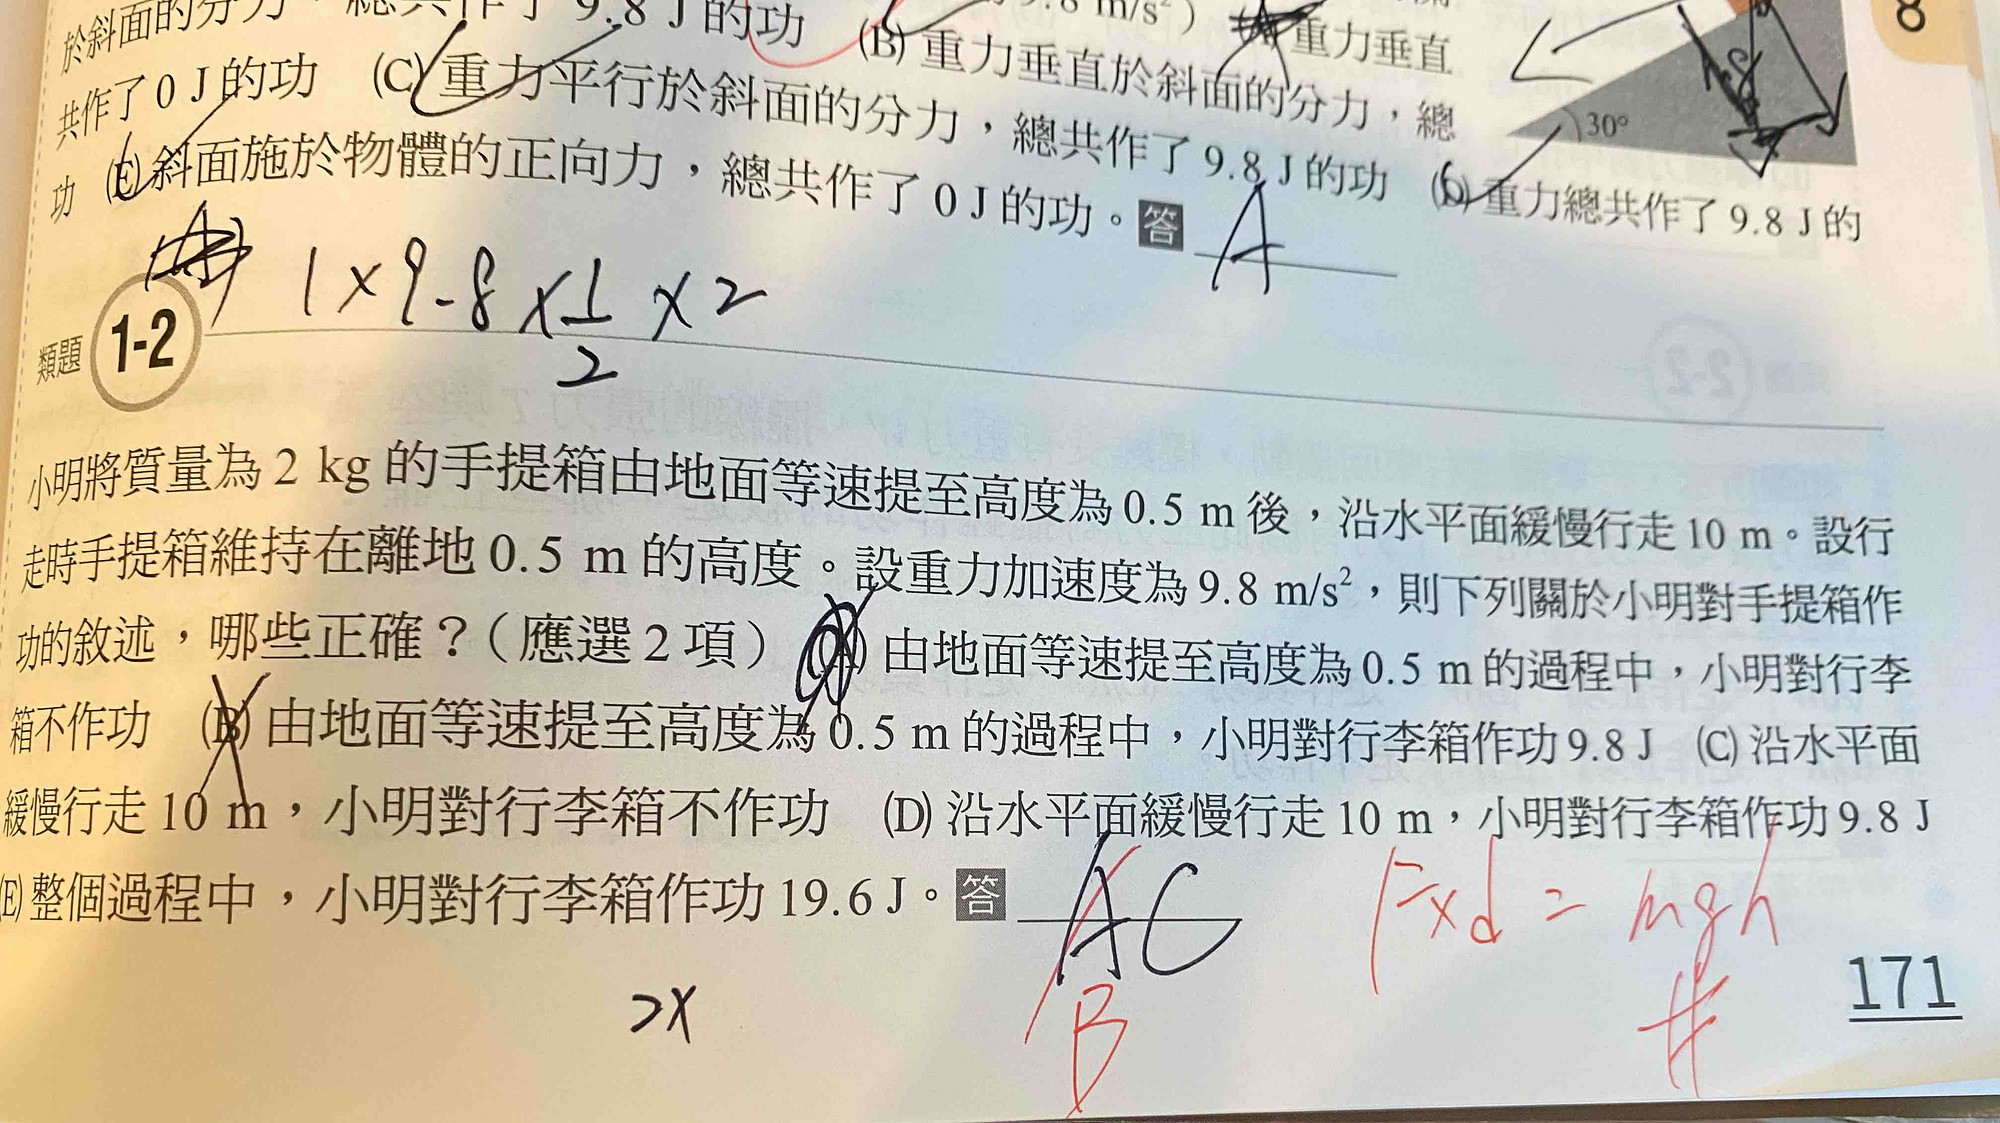 於斜面的分力，總共作了 9.8 J 的功 (B) 重力垂直於斜面的分力，總
m/s²） 重力垂直
共作了 0 J 的功 (C) 重力平行於斜面的分力，總共作了 9.8 J 的功 (D) 重力總共作了 9.8 J 的
功 (E) 斜面施於物體的正向力，總共作了 0 J 的功。答 A
30°
8
1 × 9.8 × 1/2 × 2
類題 1-2
小明將質量為 2 kg 的手提箱由地面等速提至高度為 0.5 m 後，沿水平面緩慢行走 10 m。設行
走時手提箱維持在離地 0.5 m 的高度。設重力加速度為 9.8 m/s²，則下列關於小明對手提箱作
功的敘述，哪些正確？（應選 2 項） (A) 由地面等速提至高度為 0.5 m 的過程中，小明對行李
箱不作功 (B) 由地面等速提至高度為 0.5 m 的過程中，小明對行李箱作功 9.8 J (C) 沿水平面
緩慢行走 10 m，小明對行李箱不作功 (D) 沿水平面緩慢行走 10 m，小明對行李箱作功 9.8 J
(E) 整個過程中，小明對行李箱作功 19.6 J。答 AC
B
F×d = mgh
2×
171